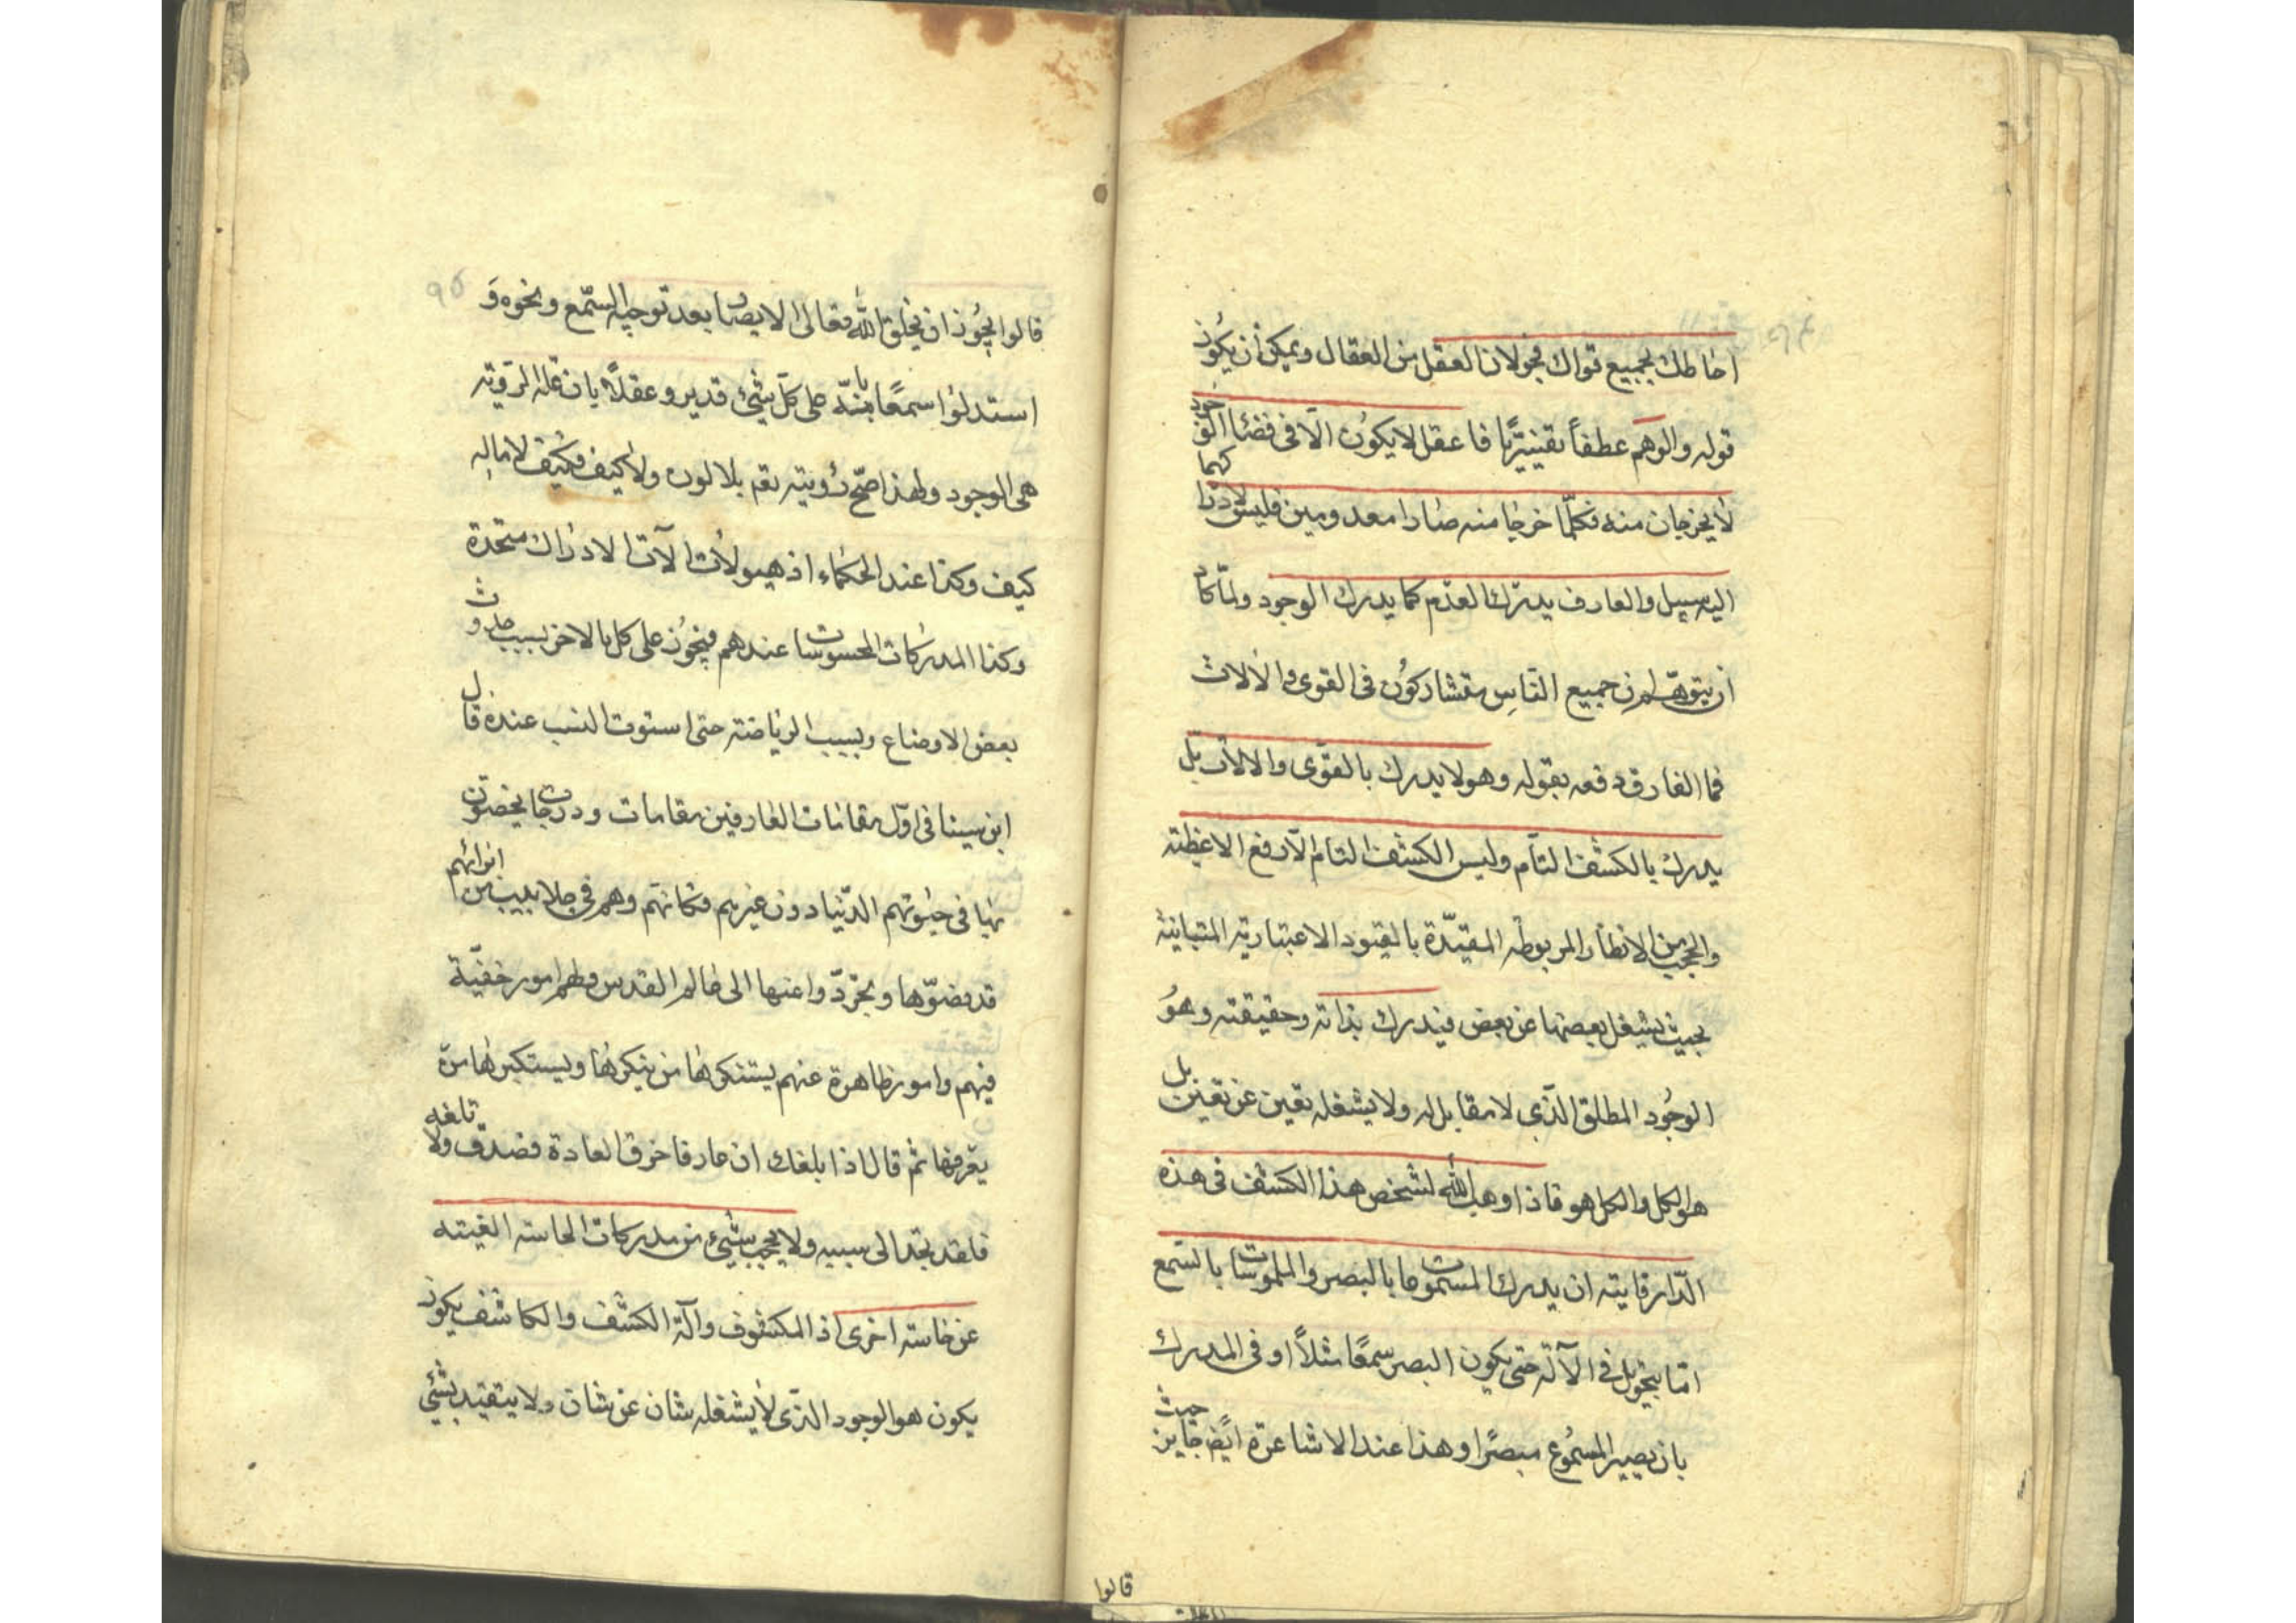 احاطك بجميع قواك فجولان العقل من العقال ويمكن أن يكون
قوله والوهم عطفاً تفسيريًا فا عقل لا يكون الا فى فضاء الوجود
لا يخرجان منه فكلّما خرجا منه صارا معدومين فليس لادراكهما
اليه سبيل والعارف يدرك العدم كما يدرك الوجود ولمّا كاد
ان يتوهّم ان جميع النّاس متشاركون فى القوى والالات
فما الفارق دفعه بقوله وهو لا يدرك بالقوى والالات بل
يدرك بالكشف التام وليس الكشف التام الّا رفع الاغطيته
والحجب من الانظار المربوطه المقيّدة بالقيود الاعتباريته المتباينة
بحيث يشغل بعضها عن بعض فيدرك بذاته وحقيقته وهو
الوجود المطلق الذّى لا مقابل له ولا يشغله تعين عن تعين بل
هو الكل والكل هو فاذا وهب الله لشخص هذا الكشف فى هذه
الدّار فايته ان يدرك المشمومات بالبصر والملموسات بالسّمع
امّا بتحويل فى الآلة حتى يكون البصر سمعًا مثلاً او فى المدرك
بان يصير المسموع مبصرًا وهذا عند الاشاعرة ايضً جايز حيث
قالوا
٩٥
قالوا يجوز ان يخلق الله تعالى الابصار بعد توجيه السّمع ونحوه وَ
استدلوا سمعًا بانّه على كلّ شئ قدير وعقلاً بان علة الرويته
هى الوجود ولهذا صحّ رؤيته تعم بلا لون ولا كيف وكيف لا ماله
كيف وكذا عند الحكماء اذ هيولات الآت الادراك متحدة
وكذا المدركات المحسوسات عندهم فيجوز على كل ما الاخر بسبب حدوث
بعض الاوضاع وبسبب الرياضته حتى استوت النسب عنده قال
ابن سينا فى اوّل مقامات العارفين مقامات ودرجات يخصّون
بها فى حيوتهم الدّنيا دون غيرهم فكانهم وهم فى جلابيب من ابدانهم
قد نضوّها وتجرّدوا عنها الى عالم القدس ولهم امور خفيّة
فيهم وامور ظاهرة عنهم يستنكرها من ينكرها ويستكبرها من
يعرفها ثم قال اذا بلغك ان عارفا خرق العادة فصدق ولا
فلقد تجد الى سببه ولا يحجب شئ من مدركات الحاسته الغيته
عن حاسته اخرى اذ المكشوف وآلة الكشف والكاشف يكون
يكون هو الوجود الذّى لا يشغله شان عن شان ولا يتقيد بشئ